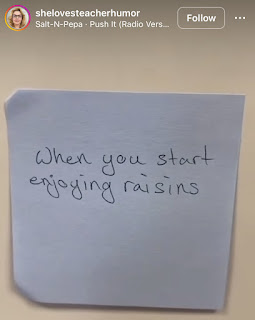 shelovesteacherhumor
Salt-N-Pepa · Push It (Radio Vers...
Follow
When you start
enjoying raisins